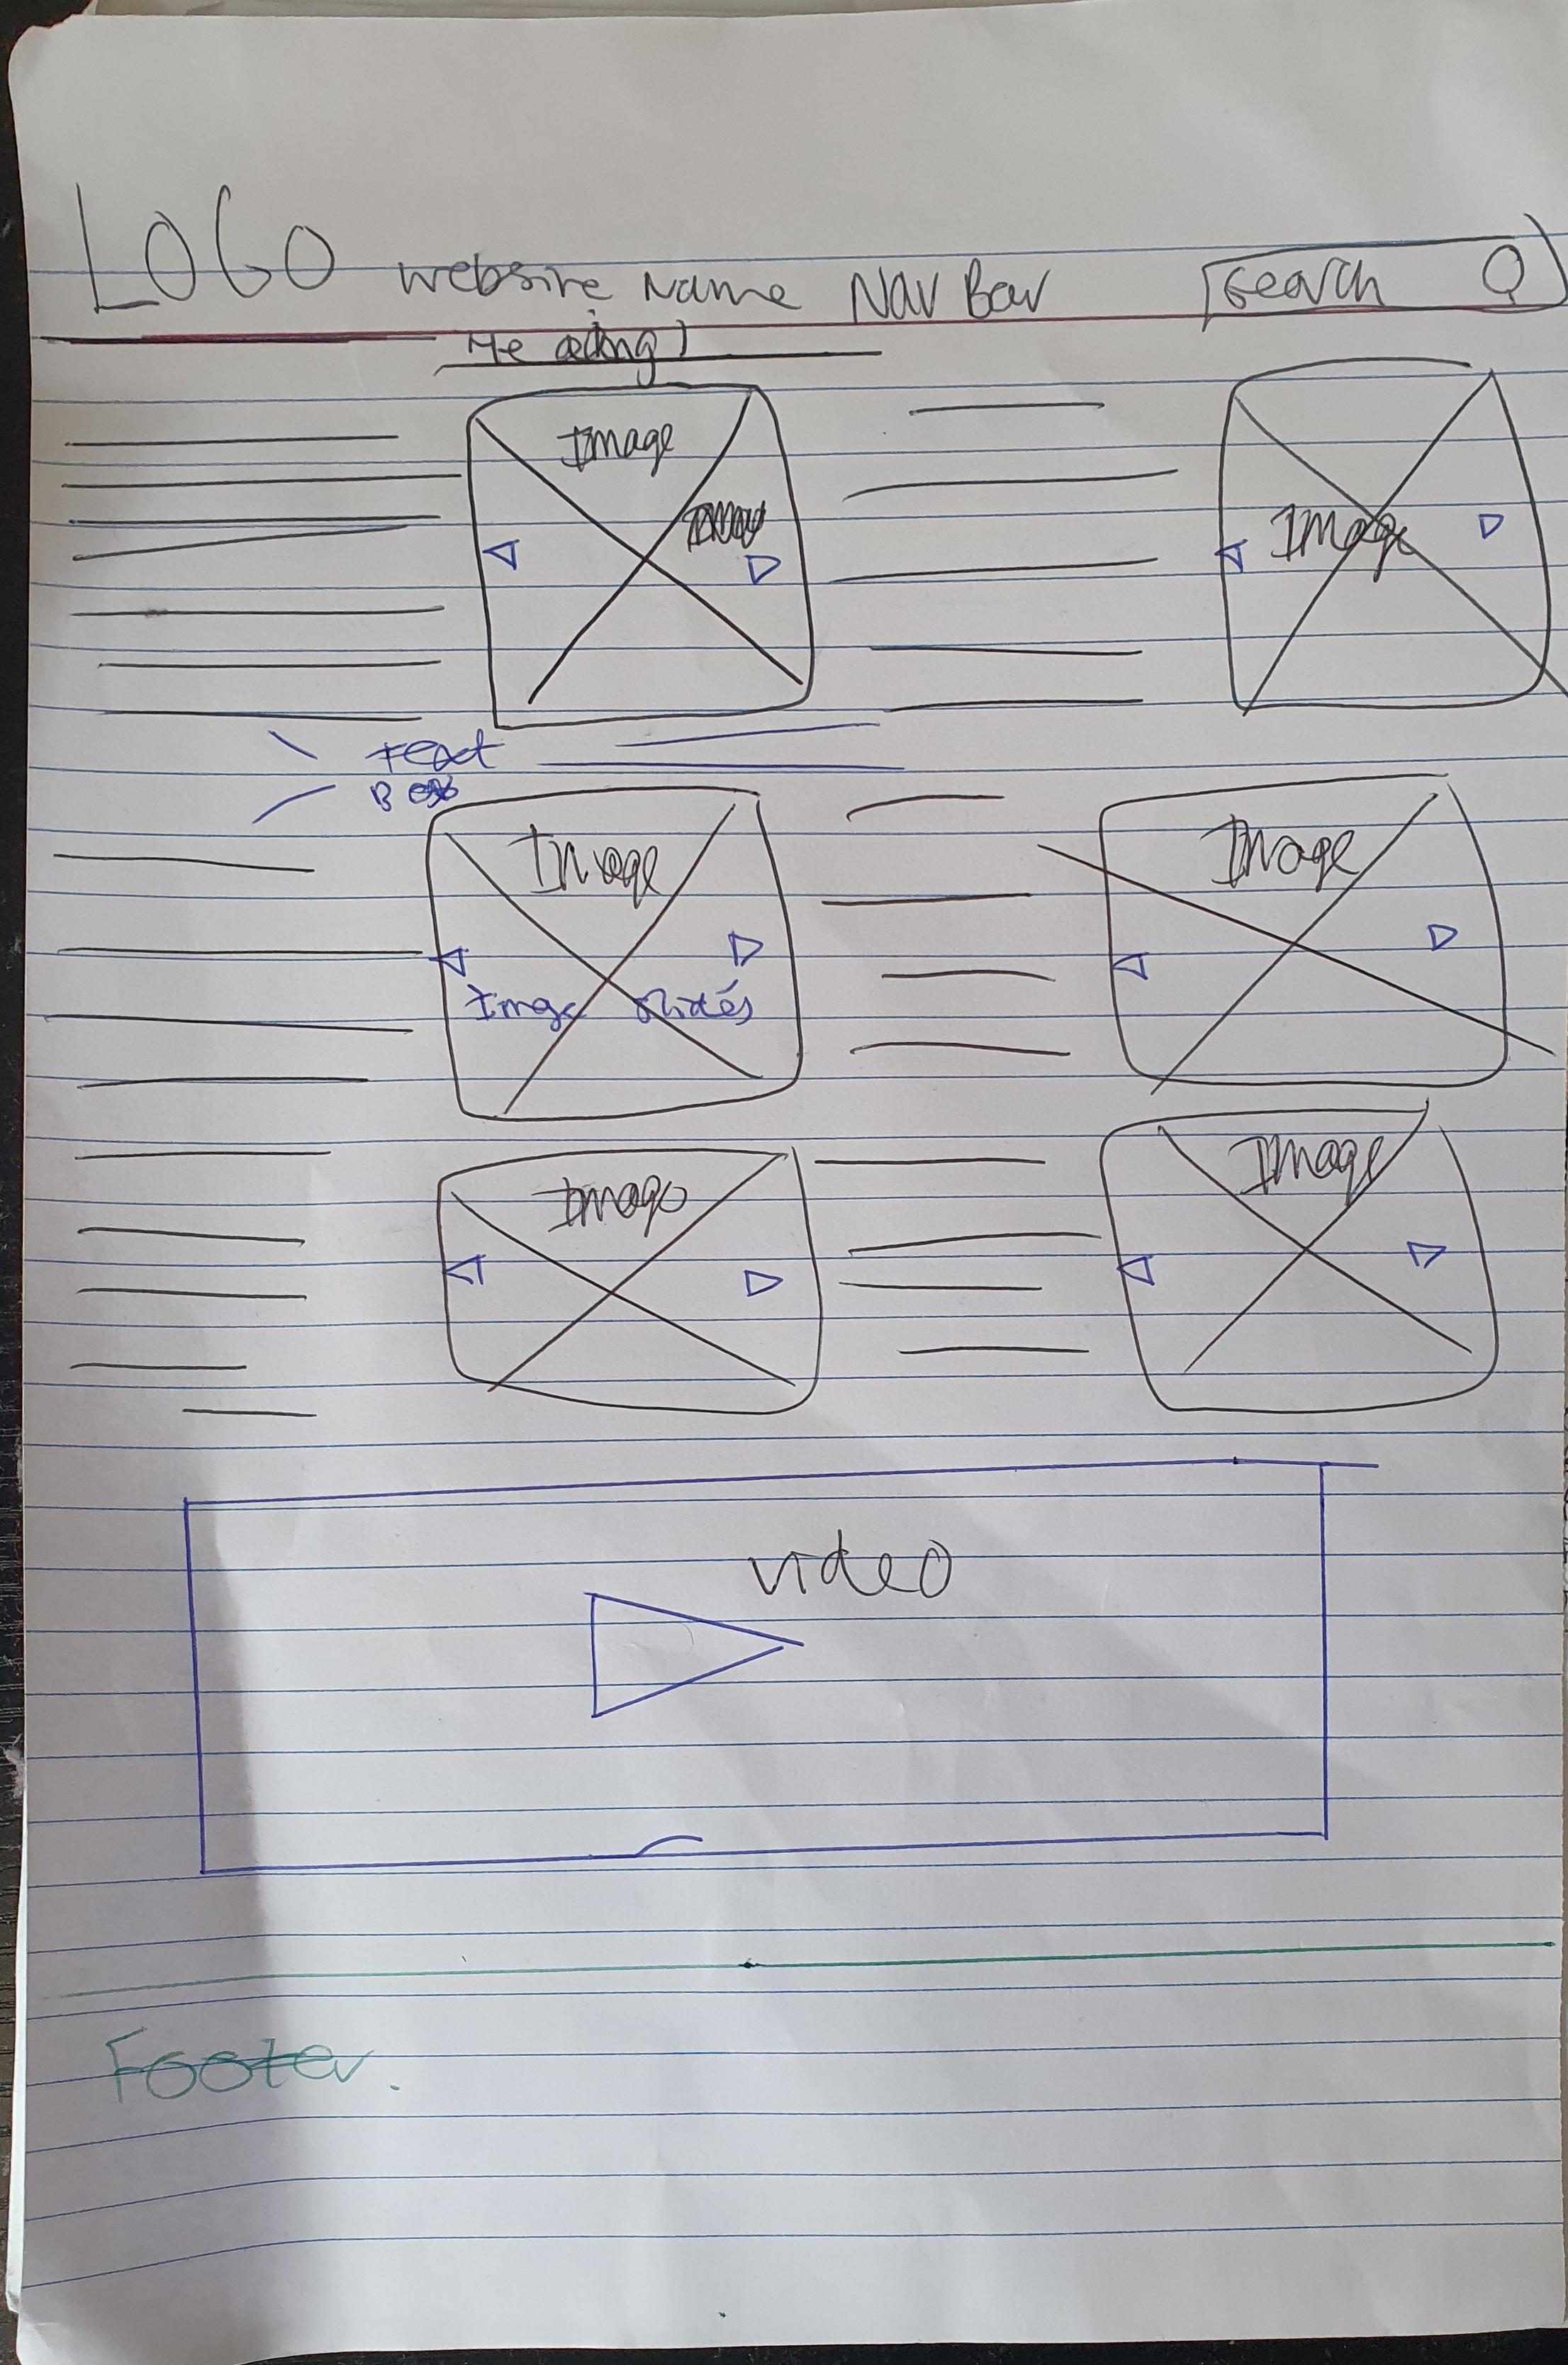 LOGO website Name Nav Bar Search
Heading
Image
Image
Text
Box
Image
Image
Image slides
Image
Image
video
Footer.